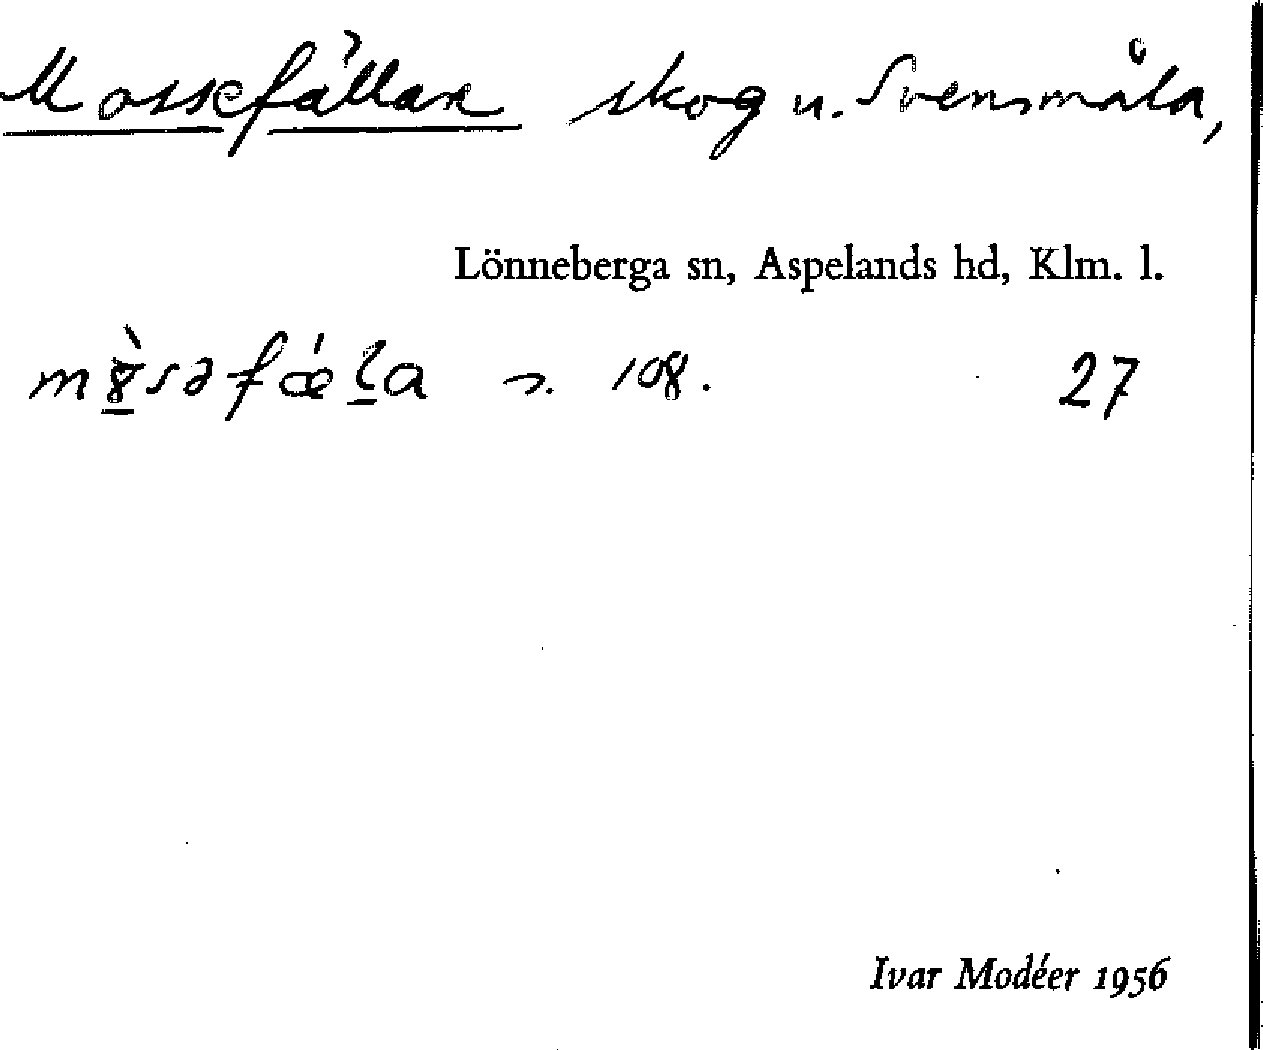 Mossefällan skog u. Svensmåla,
Lönneberga sn, Aspelands hd, Klm. l.
108. 27
Ivar Modéer 1956